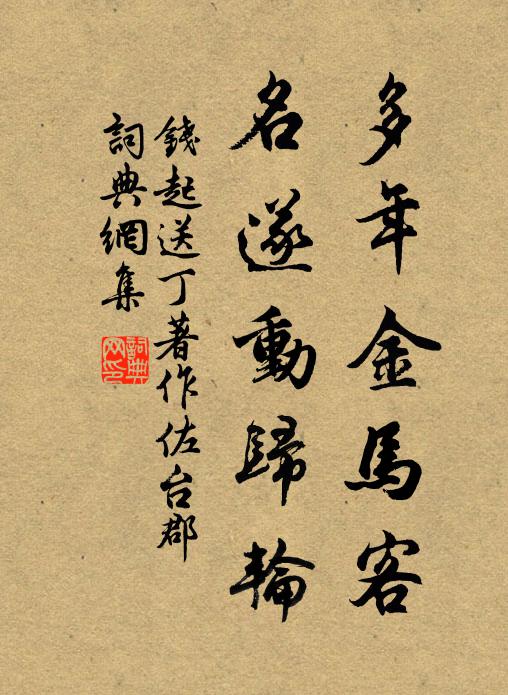 多年金馬客
名遂動歸輪
錢起送丁著作佐台郡
詞典網集
詞典
网印